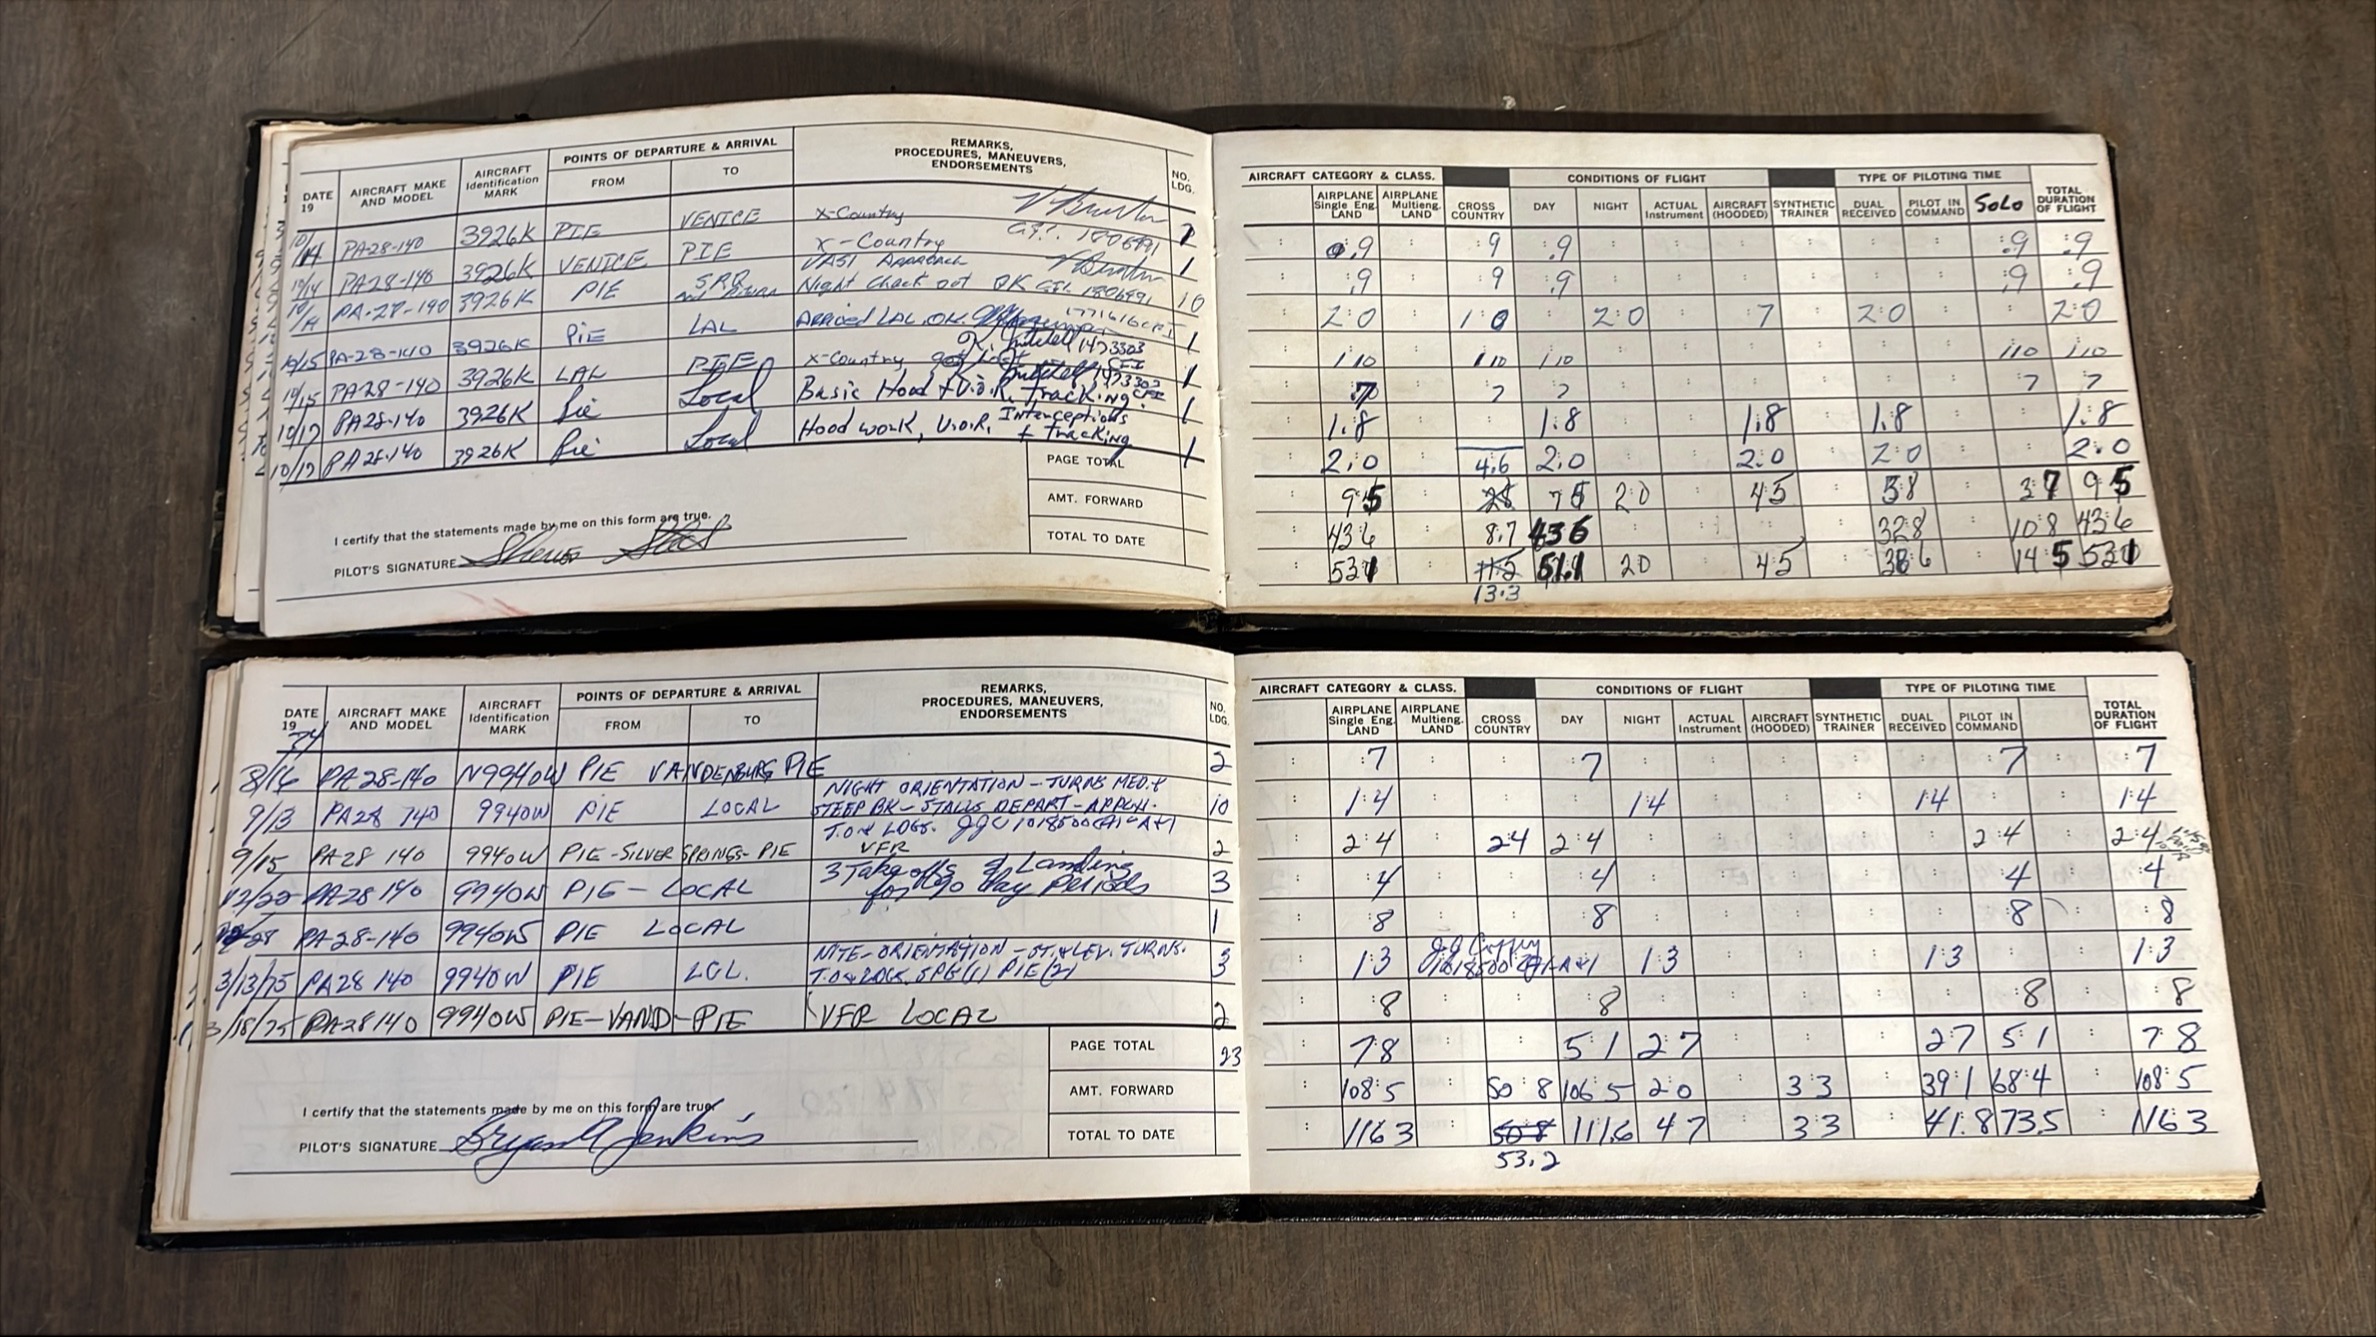 AIRCRAFT CATEGORY & CLASS. CONDITIONS OF FLIGHT TYPE OF PILOTING TIME
DATE 19 AIRCRAFT MAKE AND MODEL AIRCRAFT Identification MARK POINTS OF DEPARTURE & ARRIVAL FROM TO REMARKS, PROCEDURES, MANEUVERS, ENDORSEMENTS NO. LDG. AIRPLANE Single Eng. LAND AIRPLANE Multieng. LAND CROSS COUNTRY DAY NIGHT ACTUAL Instrument AIRCRAFT (HOODED) SYNTHETIC TRAINER DUAL RECEIVED PILOT IN COMMAND SOLO TOTAL DURATION OF FLIGHT
10/14 PA28-140 3926K PIE VENICE X-Country 1 .9 .9 .9 .9 .9
10/14 PA28-140 3926K VENICE PIE X-Country 1 .9 .9 .9 .9 .9
VASI Approach
PA-28-140 3926K PIE Night Check out OK 1806491 10 2:0 1:0 2:0 7 2:0 2:0
10/15 PA-28-140 3926K PIE LAL Arrived LAL OK. 1 1:10 1:10 1:10 1:10 1:10
1473303
10/15 PA-28-140 3926K LAL PIE X-Country got lost 1 7 7 7 7 7
1473303
10/17 PA28-140 3926K Pie Local Basic Hood + V.O.R. Tracking. 1 1.8 1:8 1.8 1.8 1.8
10/17 PA28-140 3926K Pie Local Hood work, V.O.R. Interceptions + Tracking 1 2.0 2.0 2.0 2:0 2.0
4.6
PAGE TOTAL 9 5 28 7 5 2:0 4:5 3:8 3 7 9 5
AMT. FORWARD 43 6 8.7 43 6 32 8 10 8 43 6
TOTAL TO DATE 53 1 11.5 51.1 2 0 4:5 36 6 14 5 53 1
13.3
I certify that the statements made by me on this form are true.
PILOT'S SIGNATURE
AIRCRAFT CATEGORY & CLASS. CONDITIONS OF FLIGHT TYPE OF PILOTING TIME
DATE 19 74 AIRCRAFT MAKE AND MODEL AIRCRAFT Identification MARK POINTS OF DEPARTURE & ARRIVAL FROM TO REMARKS, PROCEDURES, MANEUVERS, ENDORSEMENTS NO. LDG. AIRPLANE Single Eng. LAND AIRPLANE Multieng. LAND CROSS COUNTRY DAY NIGHT ACTUAL Instrument AIRCRAFT (HOODED) SYNTHETIC TRAINER DUAL RECEIVED PILOT IN COMMAND TOTAL DURATION OF FLIGHT
8/16 PA28-140 N9940W PIE VANDENBURG PIE 2 :7 :7 :7 :7
NIGHT ORIENTATION - TURNS MED. &
9/13 PA28 140 9940W PIE LOCAL STEEP BK - STALLS DEPART - APPCH. 10 1:4 1:4 1:4 1:4
T.O & LDGS. JJC 1018500
9/15 PA28 140 9940W PIE - SILVER SPRINGS - PIE VFR 2 2:4 2:4 2:4 2:4 2:4
12/20 PA28 140 9940W PIE - LOCAL 3 Take offs & Landing for 90 day Periods 3 :4 :4 :4 :4
28 PA-28-140 9940W PIE LOCAL 1 :8 :8 :8 :8
NITE-ORIENTATION - ST. & LEV. TURNS.
3/13/75 PA28 140 9940W PIE LCL. T.O & LDGS. SPG (1) PIE (2) 3 1:3 1018500 1:3 1:3 1:3
3/18/75 PA28 140 9940W PIE-VAND-PIE VFR LOCAL 2 :8 :8 :8 :8
PAGE TOTAL 23 7:8 5:1 2:7 2:7 5:1 7:8
AMT. FORWARD 108:5 50:8 106:5 2:0 3:3 39:1 68:4 108:5
TOTAL TO DATE 116 3 50 8 111.6 4 7 3:3 41.8 73.5 116 3
53.2
I certify that the statements made by me on this form are true.
PILOT'S SIGNATURE Bryan A Jenkins